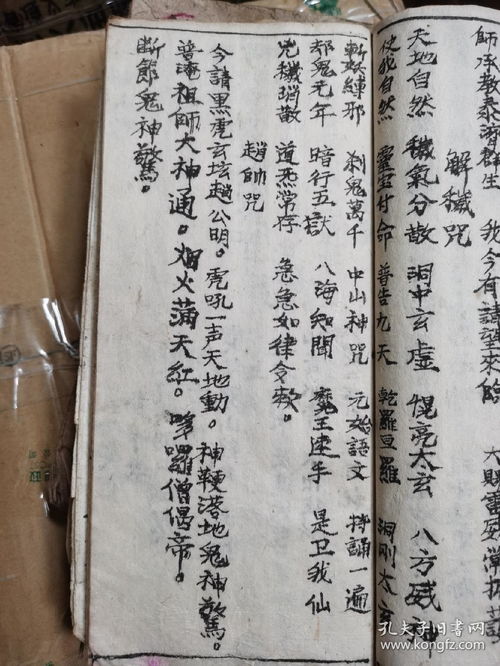 師承教泰濟群生　我今有請望來臨
解穢咒
天地自然　穢氣分散　洞中玄虛　愰亮太玄　八方威神
使我自然　靈宝付命　普告九天　乾羅亘羅　洞刚太玄
斬妖縛邪　刹鬼萬千　中山神咒　元始語文　持誦一遍
却鬼元年　暗行五獄　八海知聞　魔王速手　是卫我仙
兇穢消散　道炁常存　急急如律令敕。
趙帥咒
今請黑虎玄坛趙公明。虎吼一声天地動。神鞭落地鬼神驚。
普庵祖師大神通。烟火滿天紅。哆囉僧偈帝。
断節鬼神驚。
孔夫子旧书网